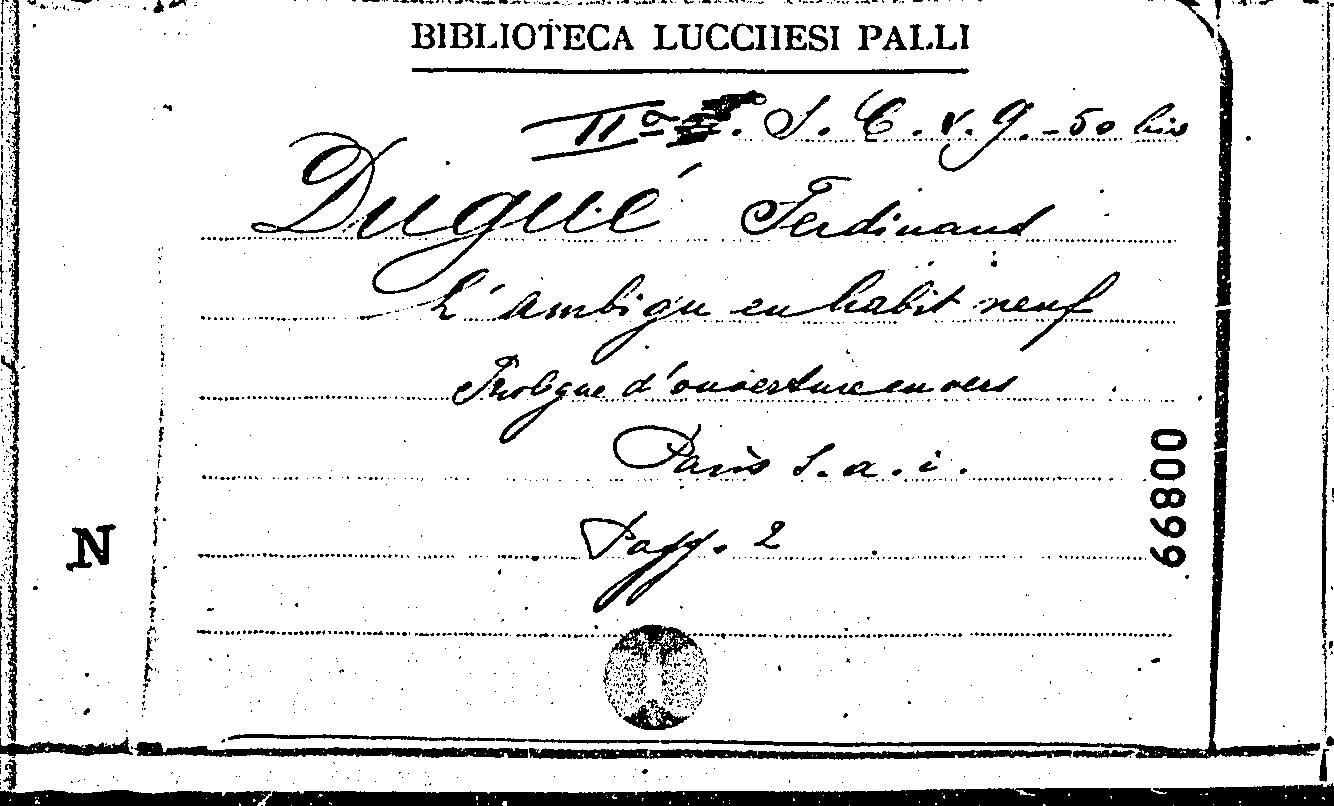 BIBLIOTECA LUCCHESI PALLI
IIª S. C. v. 9. - 50 bis
Dugué Ferdinand
L'ambigu en habit neuf
Prologue d'ouverture en vers
Paris s. a. i.
Pagg. 2
66800
N